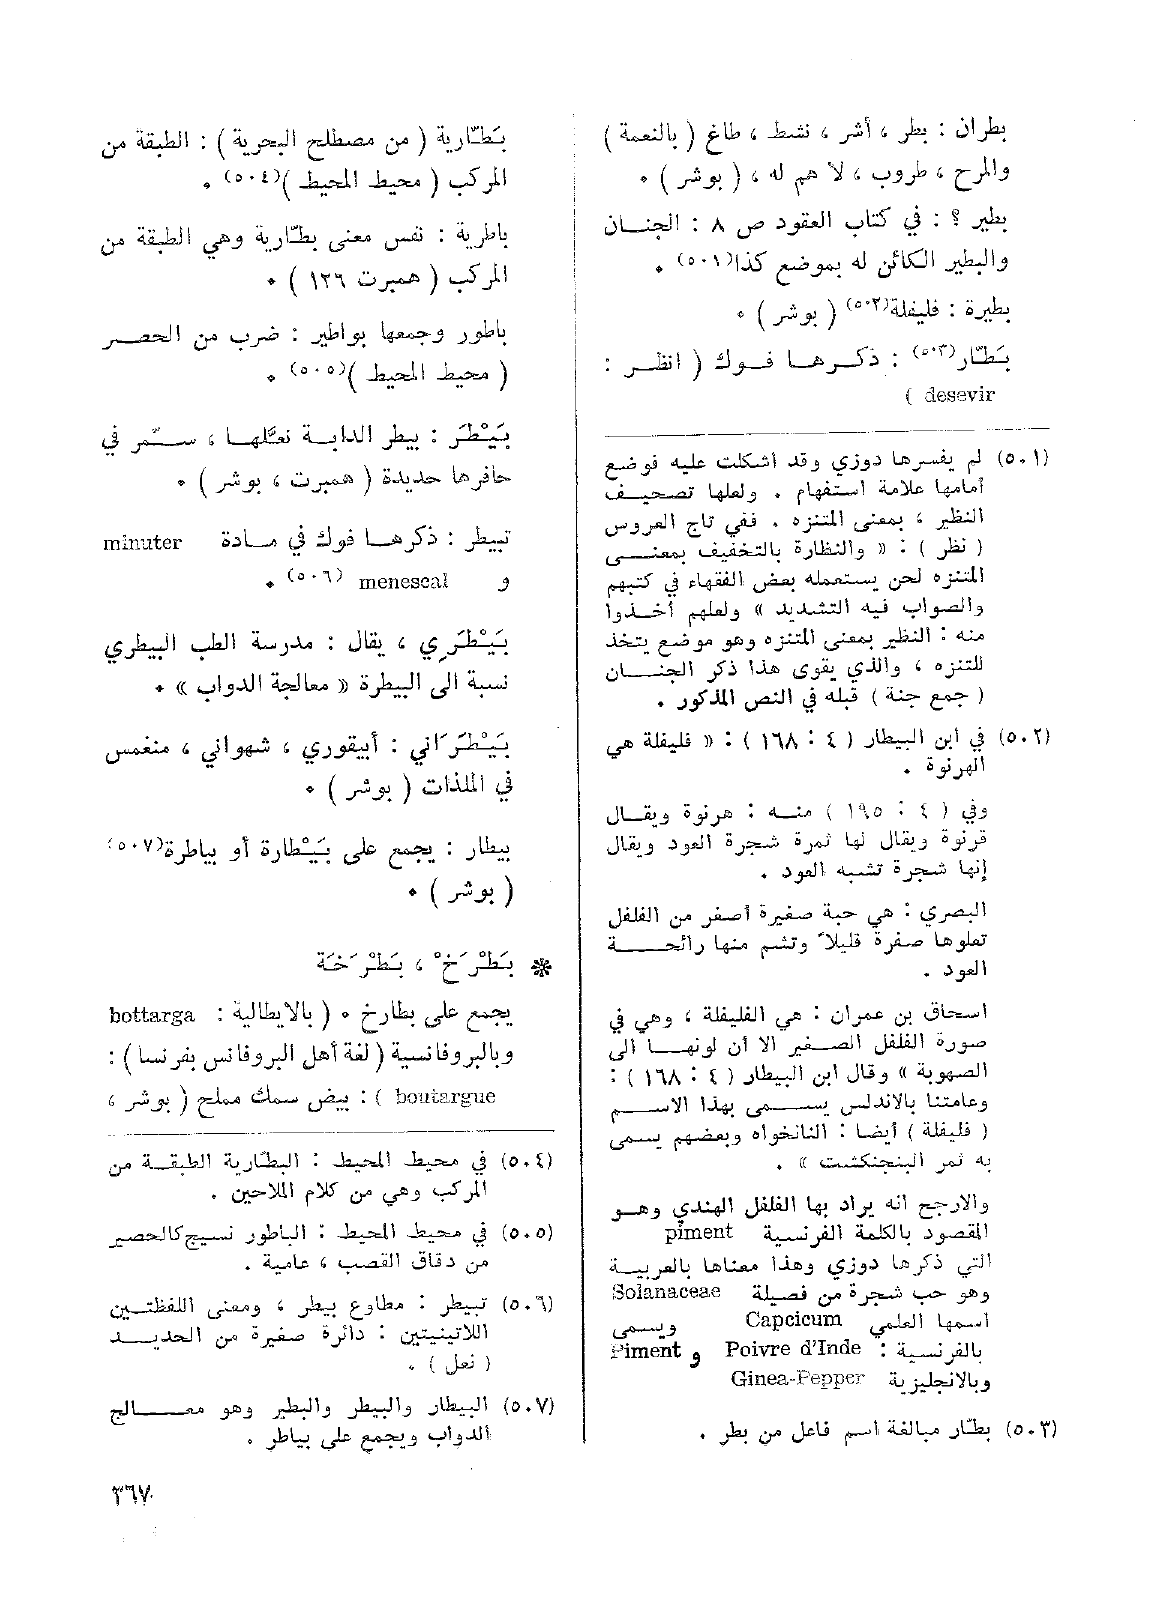 بطران : بطر ، أشر ، نشط ، طاغ ( بالنعمة )
والمرح ، طروب ، لا هم له ، ( بوشر ) •
بطير ؟ : في كتاب العقود ص ٨ : الجنـــان
والبطير الكائن له بموضع كذا(٥٠١) •
بطيرة : فليفلة(٥٠٢) ( بوشر ) •
بَطّار(٥٠٣) : ذكـــرهـــا فـــوك ( انظـــر :
desevir )
(٥٠١) لم يفسرها دوزي وقد أشكلت عليه فوضع
أمامها علامة استفهام . ولعلها تصحيـــف
النظير ، بمعنى المتنزه . ففي تاج العروس
( نظر ) : « والنظارة بالتخفيف بمعنـــى
المتنزه لحن يستعمله بعض الفقهاء في كتبهم
والصواب فيه التشديد » ولعلهم أخـــذوا
منه : النظير بمعنى المتنزه وهو موضع يتخذ
للتنزه ، والذي يقوى هذا ذكر الجنـــان
( جمع جنة ) قبله في النص المذكور .
(٥٠٢) في ابن البيطار ( ٤ : ١٦٨ ) : « فليفلة هي
الهرنوة .
وفي ( ٤ : ١٩٥ ) منـــه : هرنوة ويقـــال
قرنوة ويقال لها ثمرة شجرة العود ويقال
إنها شجرة تشبه العود .
البصري : هي حبة صغيرة أصغر من الفلفل
تعلوها صفرة قليلاً وتشم منها رائحـــة
العود .
اسحاق بن عمران : هي الفليفلة ، وهي في
صورة الفلفل الصـــغير الا أن لونهـــا الى
الصهوبة » وقال ابن البيطار ( ٤ : ١٦٨ ) :
وعامتنا بالاندلس يســـمى بهذا الاســـم
( فليفلة ) أيضا : النانخواه وبعضهم يسمى
به ثمر البنجنكشت » .
والارجح انه يراد بها الفلفل الهندي وهـــو
المقصود بالكلمة الفرنسية piment
التي ذكرها دوزي وهذا معناها بالعربيـــة
وهو حب شجرة من فصيلة Solanaceae
اسمها العلمي Capcicum ويسمى
بالفرنسية : Poivre d'Inde و Piment
وبالانجليزية Ginea-Pepper
(٥٠٣) بطّار مبالغة اسم فاعل من بطر .
بَطّارية ( من مصطلح البحرية ) : الطبقة من
المركب ( محيط المحيط )(٥٠٤) •
باطرية : نفس معنى بطّارية وهي الطبقة من
المركب ( همبرت ١٢٦ ) •
باطور وجمعها بواطير : ضرب من الحصـــر
( محيط المحيط )(٥٠٥) •
بَيْطَرَ : بيطر الدابـــة نعّلهـــا ، ســـمّر في
حافرها حديدة ( همبرت ، بوشر ) •
تبيطر : ذكرهـــا فوك في مـــادة minuter
و menescal (٥٠٦) •
بَيْطَرِي ، يقال : مدرسة الطب البيطري
نسبة الى البيطرة « معالجة الدواب » •
بَيْطَرَاني : أبيقوري ، شهواني ، منغمس
في الملذات ( بوشر ) •
بيطار : يجمع على بَيْطارة أو بياطرة(٥٠٧)
( بوشر ) •
❋ بَطْرَخْ ، بَطْرَخَة
يجمع على بطارخ • ( بالايطالية : bottarga
وبالبروفانسية ( لغة أهل البروفانس بفرنسا ) :
boutargue ) : بيض سمك مملح ( بوشر ،
(٥٠٤) في محيط المحيط : البطّارية الطبقـــة من
المركب وهي من كلام الملاحين .
(٥٠٥) في محيط المحيط : الباطور نسيج كالحصير
من دقاق القصب ، عامية .
(٥٠٦) تبيطر : مطاوع بيطر ، ومعنى اللفظتـــين
اللاتينيتين : دائرة صغيرة من الحديـــد
( نعل ) .
(٥٠٧) البيطار والبيطر والبطير وهو معـــالج
الدواب ويجمع على بياطر .
٣٦٧